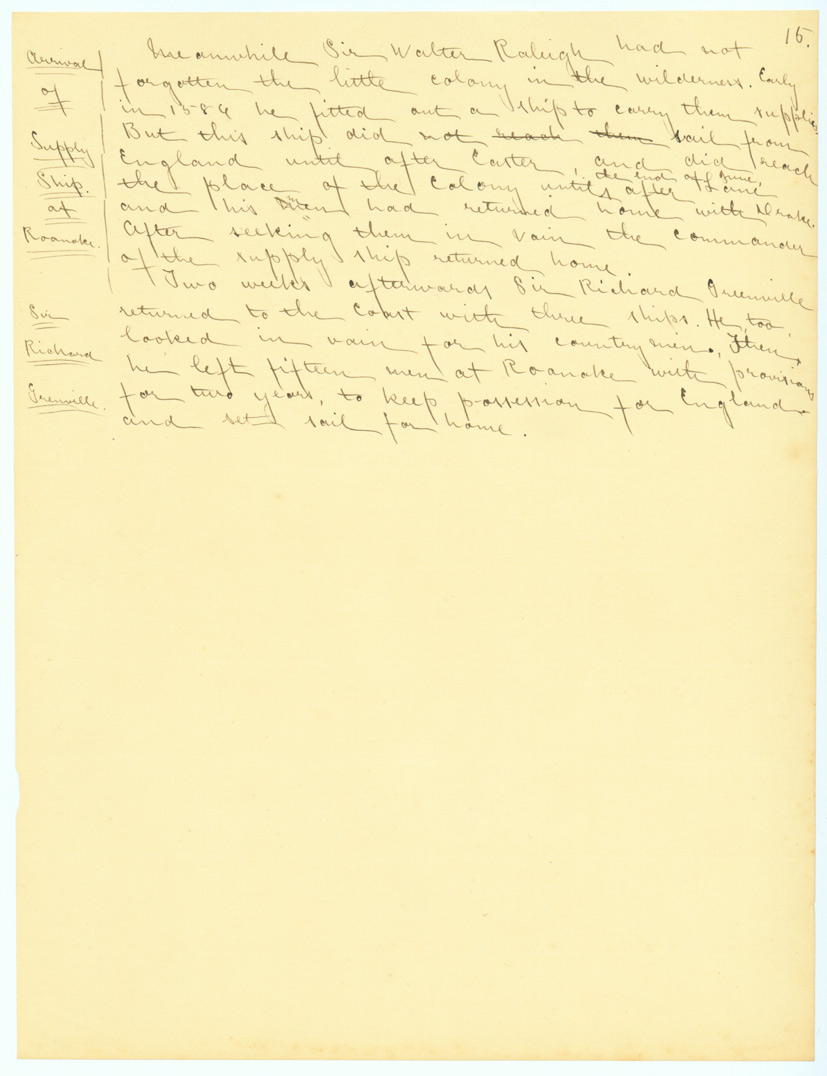 15.
Arrival
of
Supply
Ship.
at
Roanoke.
Meanwhile Sir Walter Raleigh had not
forgotten the little colony in the wilderness. Early
in 1586 he fitted out a ship to carry them supplies.
But this ship did not reach them sail from
England until after Easter, and did reach
the end of June,
the place of the Colony until after Lane
and his men had returned home with Drake.
After seeking them in vain the commander
of the supply ship returned home.
Sir
Richard
Grenville.
Two weeks afterwards Sir Richard Greenville
returned to the Coast with three ships. He, too,
looked in vain for his countrymen. Then,
he left fifteen men at Roanoke with provisions
for two years, to keep possession for England
and set sail for home.